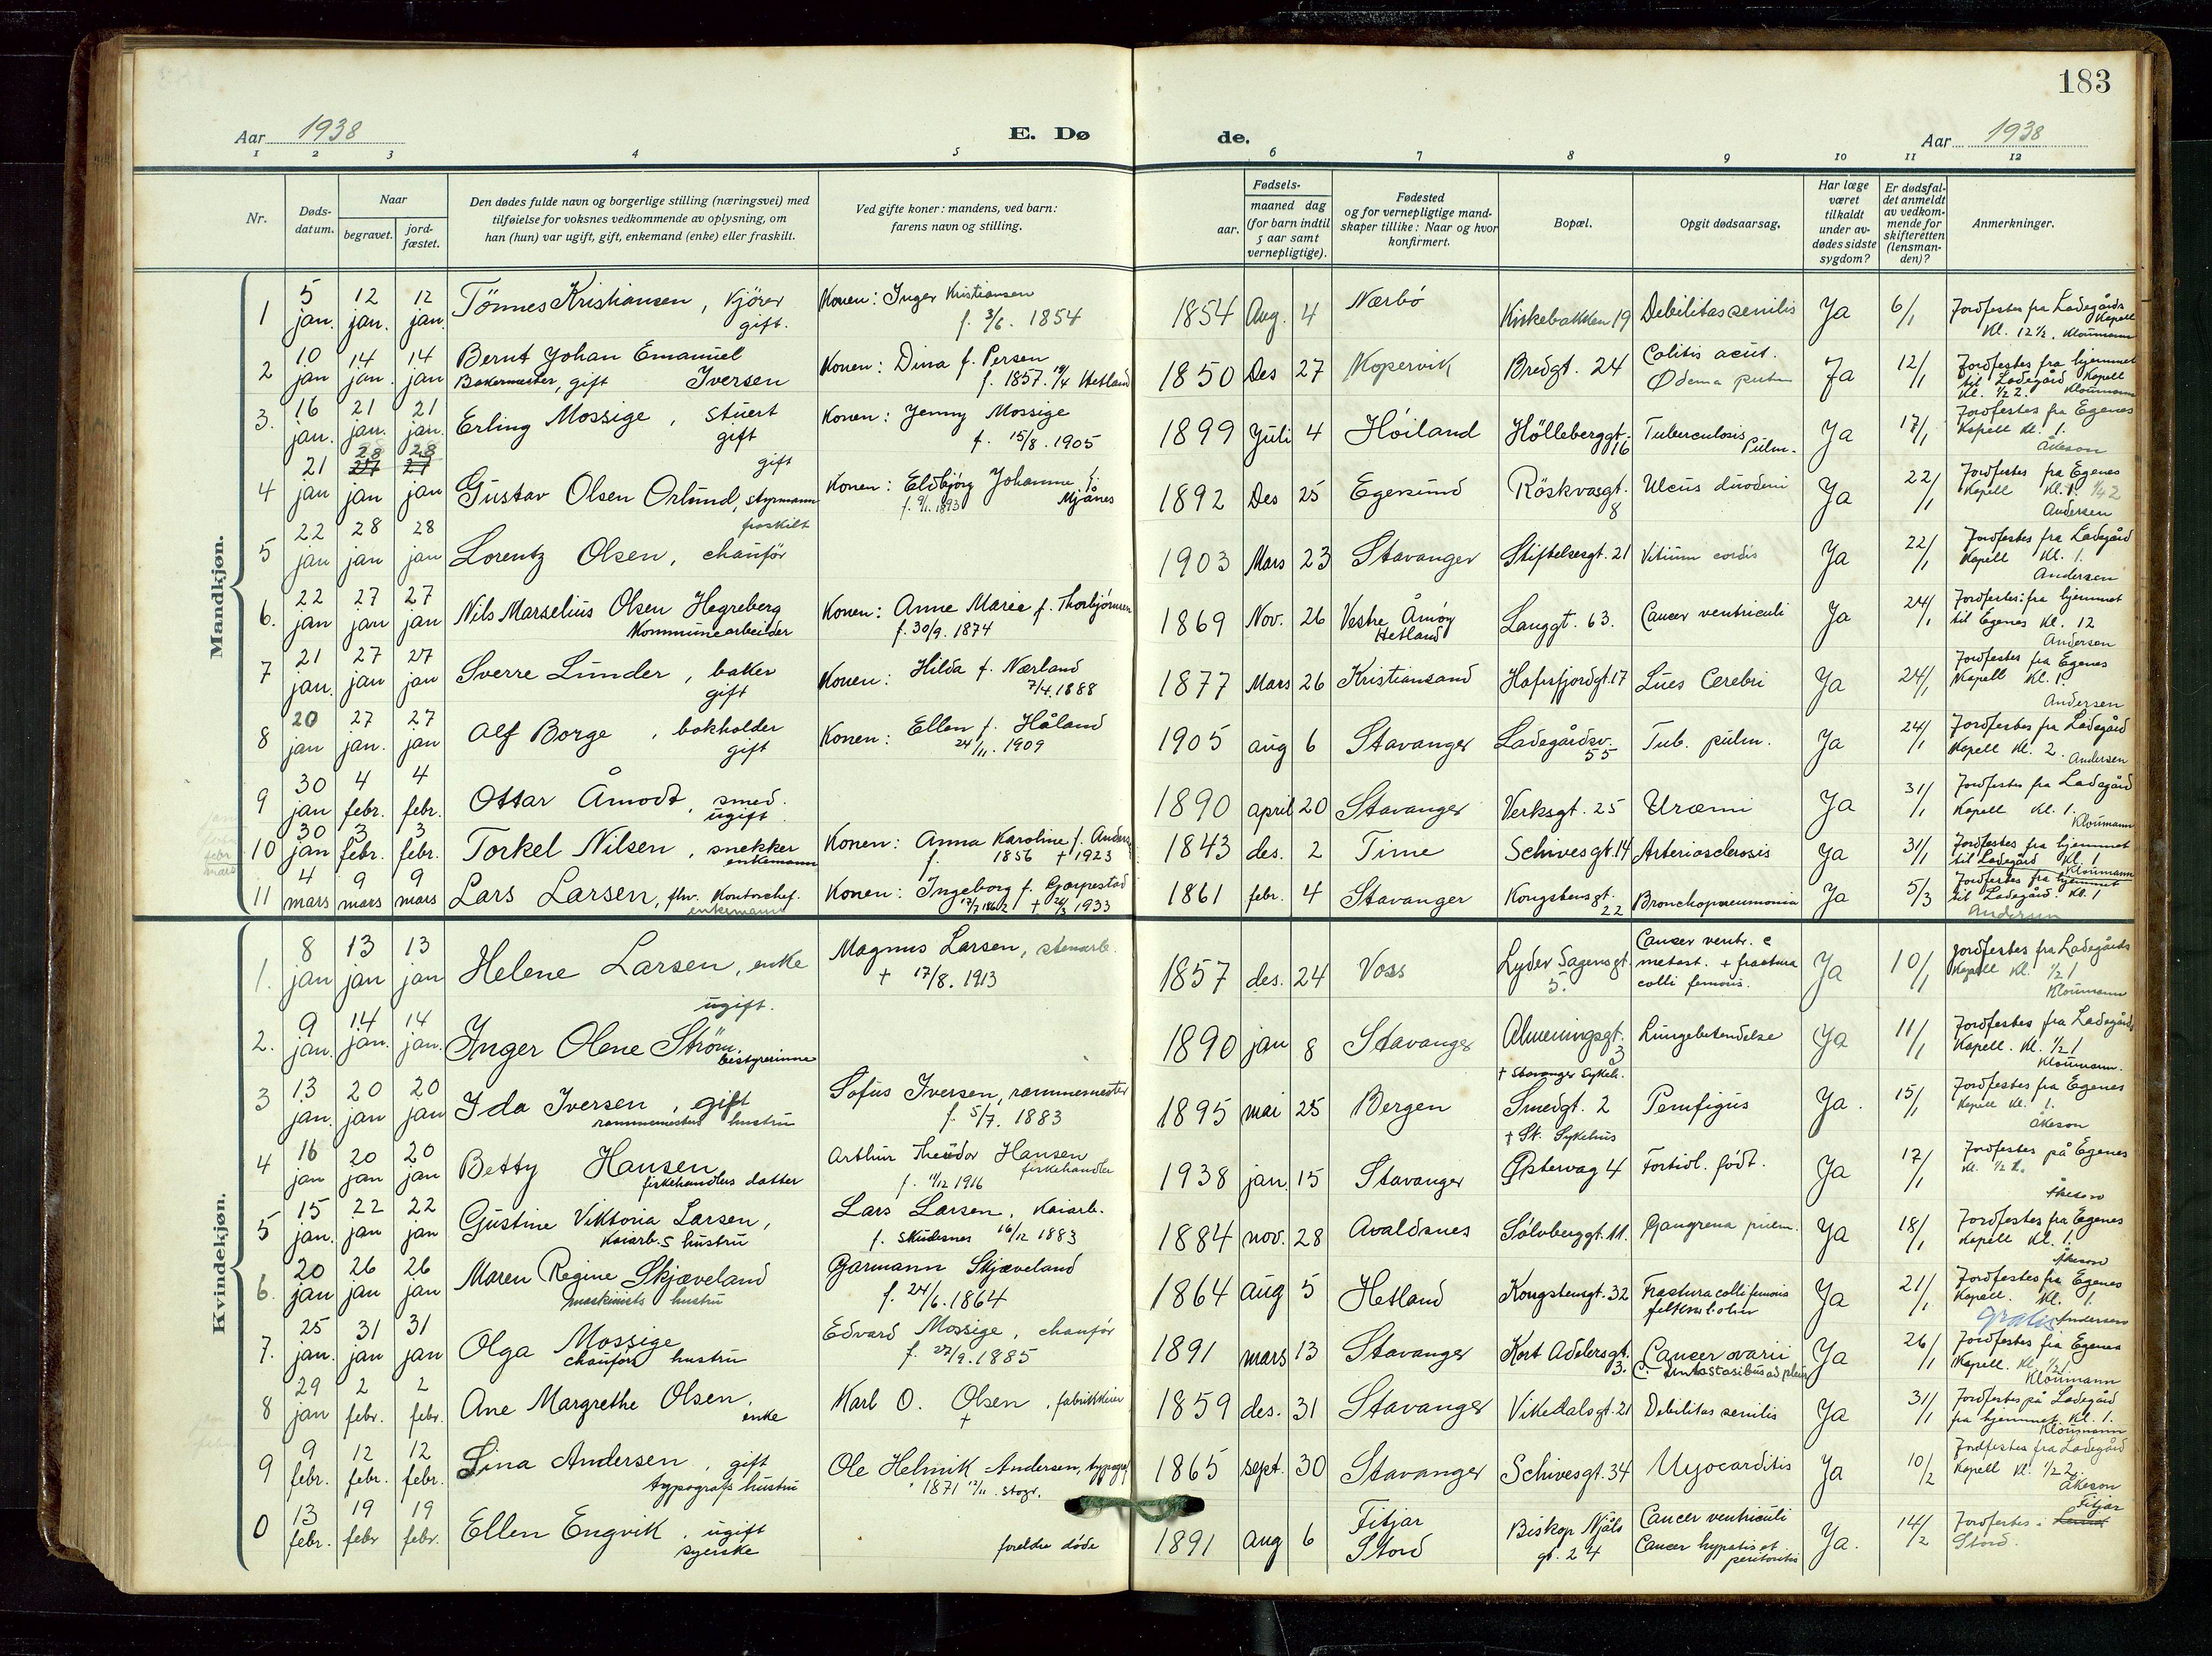 183
Aar 1938
E. Dø
de.
Aar 1938
1 2 3 4 5 6 7 8 9 10 11 12
Nr.
Døds-
datum.
Naar
begravet.
jord-
fæstet.
Den dødes fulde navn og borgerlige stilling (næringsvei) med
tilføielse for voksnes vedkommende av oplysning, om
han (hun) var ugift, gift, enkemand (enke) eller fraskilt.
Ved gifte koner: mandens, ved barn:
farens navn og stilling.
Fødsels-
aar.
maaned dag
(for barn indtil
5 aar samt
vernepligtige).
Fødested
og for vernepligtige mand-
skaper tillike: Naar og hvor
konfirmert.
Bopæl.
Opgit dødsaarsag.
Har læge
været
tilkaldt
under av-
dødes sidste
sygdom?
Er dødsfal-
det anmeldt
av vedkom-
mende for
skifteretten
(lensman-
den)?
Anmerkninger.
Mandkjøn.
1 5 jan. 12 jan. 12 jan. Tönnes Kristiansen, kjörer gift. Konen: Inger Kristiansen f. 3/6. 1854 1854 Aug. 4 Nærbö Kirkebakken 19 Debilitas senilis Ja 6/1 Jordfestes fra Ladegårds Kapell Kl. 12½. Kloumann
2 10 jan 14 jan. 14 jan Bernt Johan Emanuel Iversen Bakermester, gift Konen: Dina f. Persen f. 1857. 19/4 Hetland 1850 Des 27 Kopervik Bredgt. 24 Colitis acut. Ødema pulm Ja 12/1 Jordfestes fra hjemmet til Ladegård Kapell Kl. ½2. Kloumann
3. 16 jan. 21 jan. 21 jan. Erling Mossige, stuert gift Konen: Jenny Mossige f. 15/8. 1905 1899 Juli 4 Höiland Hölleberggt. 16 Tuberculosis Pulm. Ja 17/1 Jordfestes fra Egenes Kapell Kl. 1. Åkeson
4 21 jan 28 27 jan 28 27 jan gift Gustav Olsen Orlund, styrmann Konen: Eldbjörg Johanne f. Mjånes f. 9/1. 1893 1892 Des 25 Egersund Röskvasgt. 8 Ulcus duodeni Ja 22/1 Jordfestes fra Egenes Kapell Kl. 1. ½2 Andersen
5 22 jan 28 jan 28 jan fraskilt Lorentz Olsen, chauför 1903 Mars 23 Stavanger Stiftelsesgt. 21 Vitium cordis Ja 22/1 Jordfestes fra Ladegård Kapell Kl. 1. Andersen
6. 22 jan 27 jan 27 jan Nils Marselius Olsen Hegreberg Kommunearbeider Konen: Anne Marie f. Thorbjörnsen f. 30/9. 1874 1869 Nov. 26 Vestre Åmöy Hetland Langgt. 63. Cancer ventriculi Ja 24/1 Jordfestes fra hjemmet til Egenes Kl. 12 Andersen
7 21 jan. 27 jan 27 jan Sverre Lunder, baker gift Konen: Hilda f. Nærland 7/4. 1888 1877 Mars 26 Kristiansand Hafrsfjordgt. 17 Lues Cerebri Ja 24/1 Jordfestes fra Egenes Kapell Kl. 1. Andersen
8 20 jan 27 jan. 27 jan Alf Borge, bokholder gift Konen: Ellen f. Håland 24/11. 1909 1905 aug 6 Stavanger Ladegårdsv. 55 Tub. pulm. Ja 24/1 Jordfestes fra Ladegård Kapell Kl. 2. Andersen
9 30 jan 4 febr. 4 febr. Ottar Åmodt, smed. ugift 1890 april 20 Stavanger Verksgt. 25 Uræmi Ja 31/1 Jordfestes fra Ladegård Kapell Kl. 1. Kloumann
10 30 jan 3 febr. 3 febr. Torkel Nilsen, snekker enkemann Konen: Anna Karoline f. Anders f. 1856 + 1923 1843 des. 2 Time Schivesgt. 14 Arteriosclerosis Ja 31/1 Jordfestes fra hjemmet til Ladegård Kl. 1 Kloumann
11 4 mars 9 mars 9 mars Lars Larsen, fhv. Kontorchef. enkemand Konen: Ingeborg f. Gjerpestad 17/7 1862 + 24/3 1933 1861 febr. 4 Stavanger Kongstensgt. 22 Bronchopneumonia Ja 5/3 Jordfestes fra hjemmet til Ladegård. Kl. 1 Andersen
Kvindekjøn.
1. 8 jan 13 jan 13 jan Helene Larsen, enke Magnus Larsen, stenarb. + 17/8. 1913 1857 des. 24 Voss Lyder Sagensgt. 5. Cancer ventr. c metast. + fractura colli femoris. Ja 10/1 Jordfestes fra Ladegårds Kapell Kl. ½1 Kloumann
2. 9 jan. 14 jan. 14 jan. ugift. Inger Olene Ström. bestyrerinne 1890 jan 8 Stavanger Almenningsgt. 3 + Stavanger Sykeh. Lungebetendelse Ja 11/1 Jordfestes fra Ladegårds Kapell. Kl. ½1 Kloumann.
3 13 jan. 20 jan 20 jan Ida Iversen, gift rammemesters hustru Sofus Iversen, rammemester f. 5/7. 1883 1895 mai 25 Bergen Smedgt. 2 + St. Sykehus Pemfigus Ja. 15/1 Jordfestes fra Egenes Kapell Kl. 1. Åkeson
4 16 jan 20 jan 20 jan Betty Hansen fiskehandlers datter Arthur Theodor Hansen fiskehandler f. 11/12 1916 1938 jan. 15 Stavanger Østervåg 4 Fortidl. födt. Ja 17/1 Jordfestes på Egenes Kl. ½2. Åkeson
5 15 jan. 22 jan 22 jan Gustine Viktoria Larsen, Kaiarb.s hustru Lars Larsen, Kaiarb. f. Skudesnes 16/12 1883 1884 nov. 28 Avaldsnes Sölvberggt. 11. Gangrena pulm. Ja 18/1 Jordfestes fra Egenes Kapell Kl. 1. Åkeson
6. 20 jan 26 jan 26 jan Maren Regine Skjæveland maskinists hustru Garmann Skjæveland f. 24/6. 1864 1864 aug 5 Hetland Kongstensgt. 32 Fractura colli femoris Ja 21/1 Jordfestes fra Egenes Kapell. Kl. 1. Gratis Andersen
7. 25 jan. 31 jan 31 jan Olga Mossige chauförs hustru Edvard Mossige, chauför f. 27/9. 1885 1891 mars 13 Stavanger Kort Adelersgt. 3. Cancer ovarii c. metastasibus ad pleur Ja 26/1 Jordfestes fra Egenes Kapell. Kl. ½1. Kloumann
8 29 jan 2 febr. 2 febr. Ane Margrethe Olsen, enke Karl O. Olsen, fabrikkeier + 1859 des. 31 Stavanger Vikedalsgt. 21 Debilitas senilis Ja 31/1 Jordfestes på Ladegård fra hjemmet. Kl. 1. Kloumann
9 9 febr. 12 febr. 12 febr. Lina Andersen, gift typografs hustru Ole Helmik Andersen, typograf 1871 12/11. Stvgr. 1865 sept. 30 Stavanger Schivesgt. 34 Myocarditis Ja 10/2 Jordfestes fra Ladegård Kapell Kl. ½2. Åkeson
0 13 febr. 19 febr 19 febr. Ellen Engvik, ugift syerske foreldre döde 1891 aug 6 Fitjar Stord Biskop Njåls gt. 24 Cancer ventriculi Cancer hypatis et peritoritis Ja. 14/2 Jordfestes i Fitjar Stord.